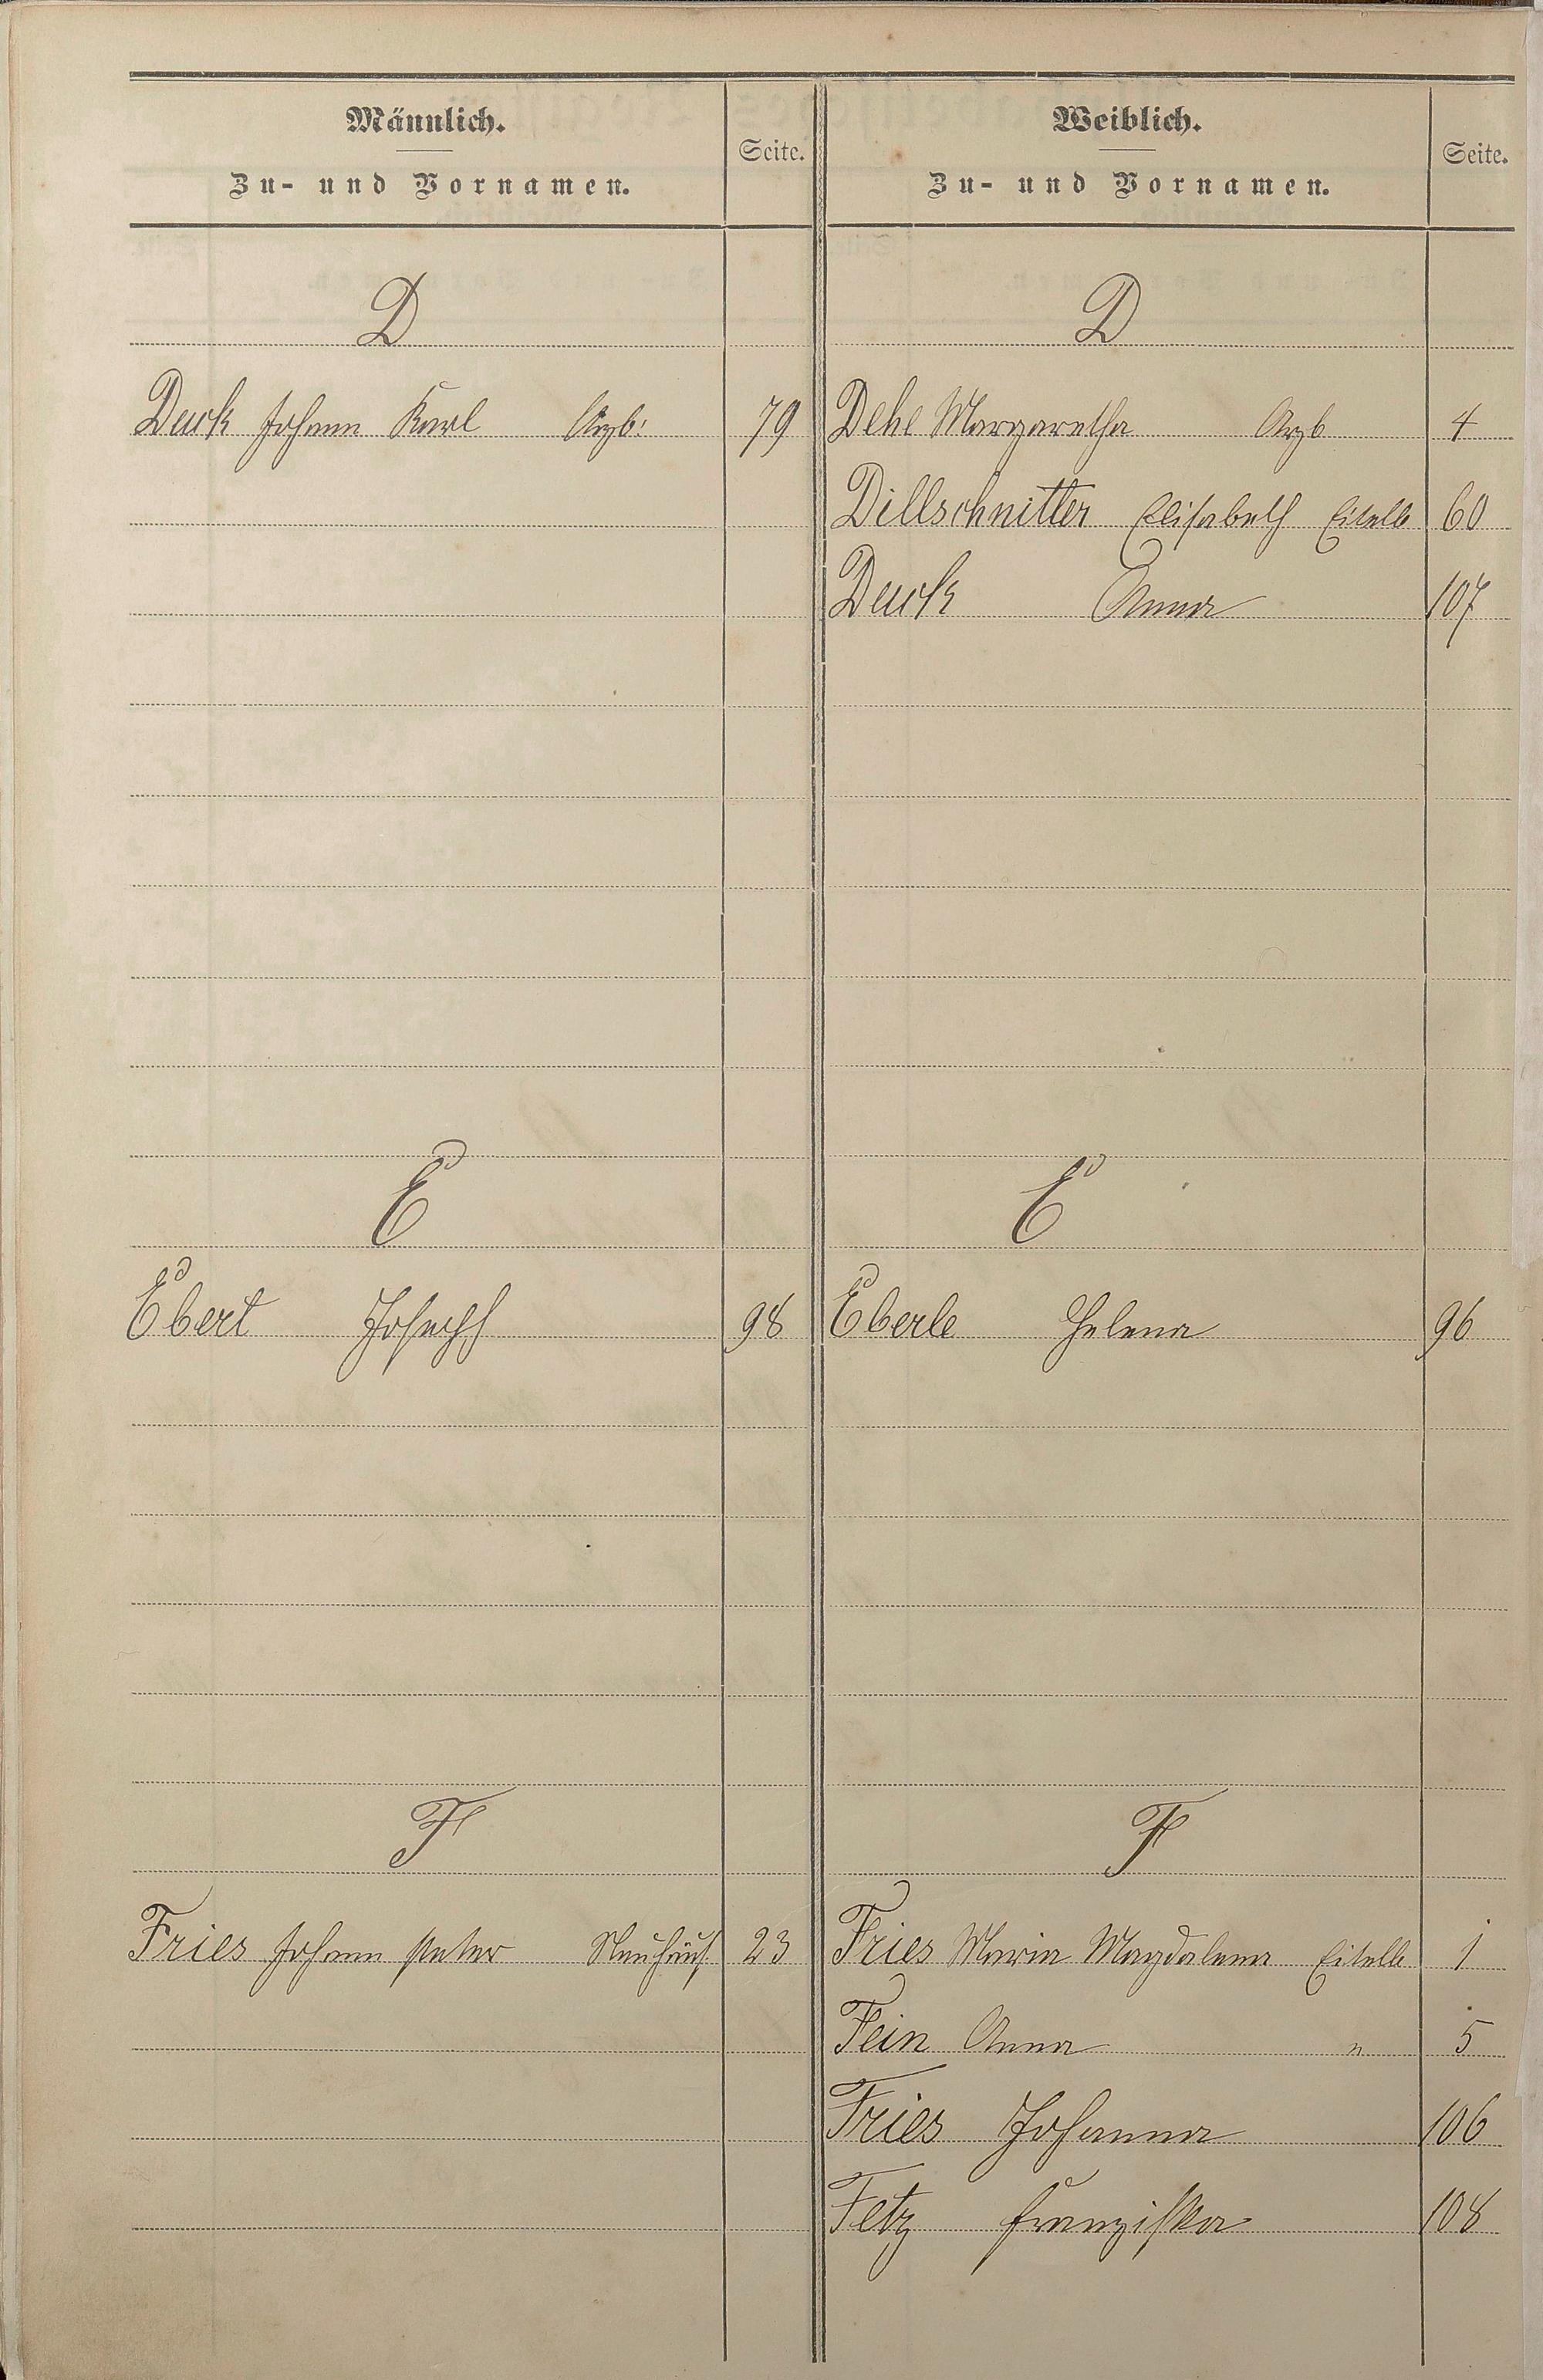 Männlich.
Zu- und Vornamen.
Seite.
Weiblich.
Zu- und Vornamen.
Seite.
D
D
Duck Johann Karl Arzb. 79
Dehe Margaretha Arzb 4
Dillschnitter Elisabeth Eitelb 60
Duck Anna 107
E
E
Ebert Joseph 98
Eberle Helena 96
F
F
Fries Johann Peter Neuhäus. 23
Fries Maria Magdalena Eitelb 1
Fein Anna " 5
Fries Johanna 106
Fetz Franziska 108